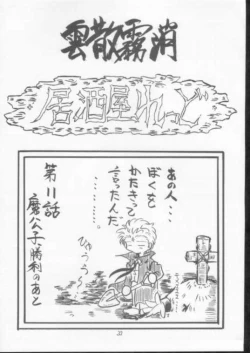 雲散霧消
居酒屋れっど
あの人・・・
ぼくを
かたきって
言ったんだ
・・・・・・
第11話
魔公子勝利のあと
ひゅうう〜